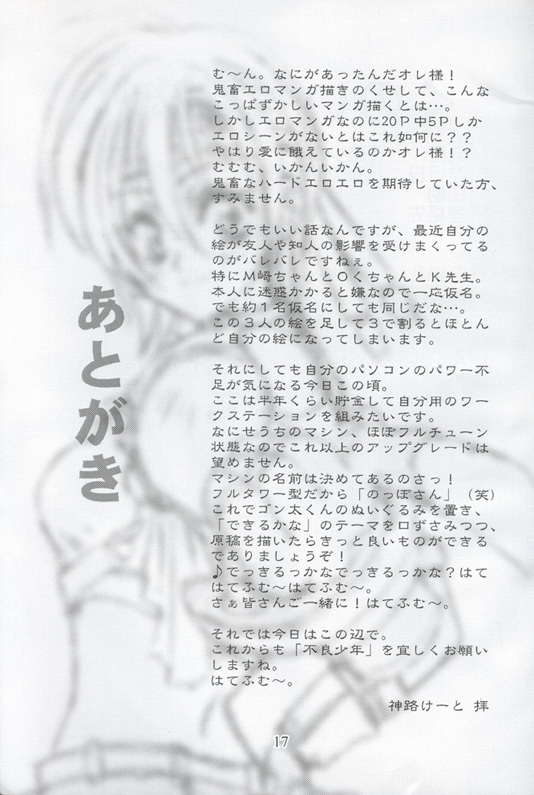 あとがき
む〜ん。なにがあったんだオレ様！
鬼畜エロマンガ描きのくせして、こんな
こっぱずかしいマンガ描くとは…。
しかしエロマンガなのに20Ｐ中5Ｐしか
エロシーンがないとはこれ如何に？？
やはり愛に餓えているのかオレ様！？
むむむ、いかんいかん。
鬼畜なハードエロエロを期待していた方、
すみません。
どうでもいい話なんですが、最近自分の
絵が友人や知人の影響を受けまくってる
のがバレバレですねぇ。
特にＭ崎ちゃんとＯくちゃんとＫ先生。
本人に迷惑かかると嫌なので一応仮名。
でも約１名仮名にしても同じだな…。
この３人の絵を足して３で割るとほとん
ど自分の絵になってしまいます。
それにしても自分のパソコンのパワー不
足が気になる今日この頃。
ここは半年くらい貯金して自分用のワー
クステーションを組みたいです。
なにせうちのマシン、ほぼフルチューン
状態なのでこれ以上のアップグレードは
望めません。
マシンの名前は決めてあるのさっ！
フルタワー型だから「のっぽさん」（笑）
これでゴン太くんのぬいぐるみを置き、
「できるかな」のテーマを口ずさみつつ、
原稿を描いたらきっと良いものができる
でありましょうぞ！
♪でっきるっかなでっきるっかな？はて
はてふむ〜はてふむ〜。
さぁ皆さんご一緒に！はてふむ〜。
それでは今日はこの辺で。
これからも「不良少年」を宜しくお願い
しますね。
はてふむ〜。
神路けーと 拝
17